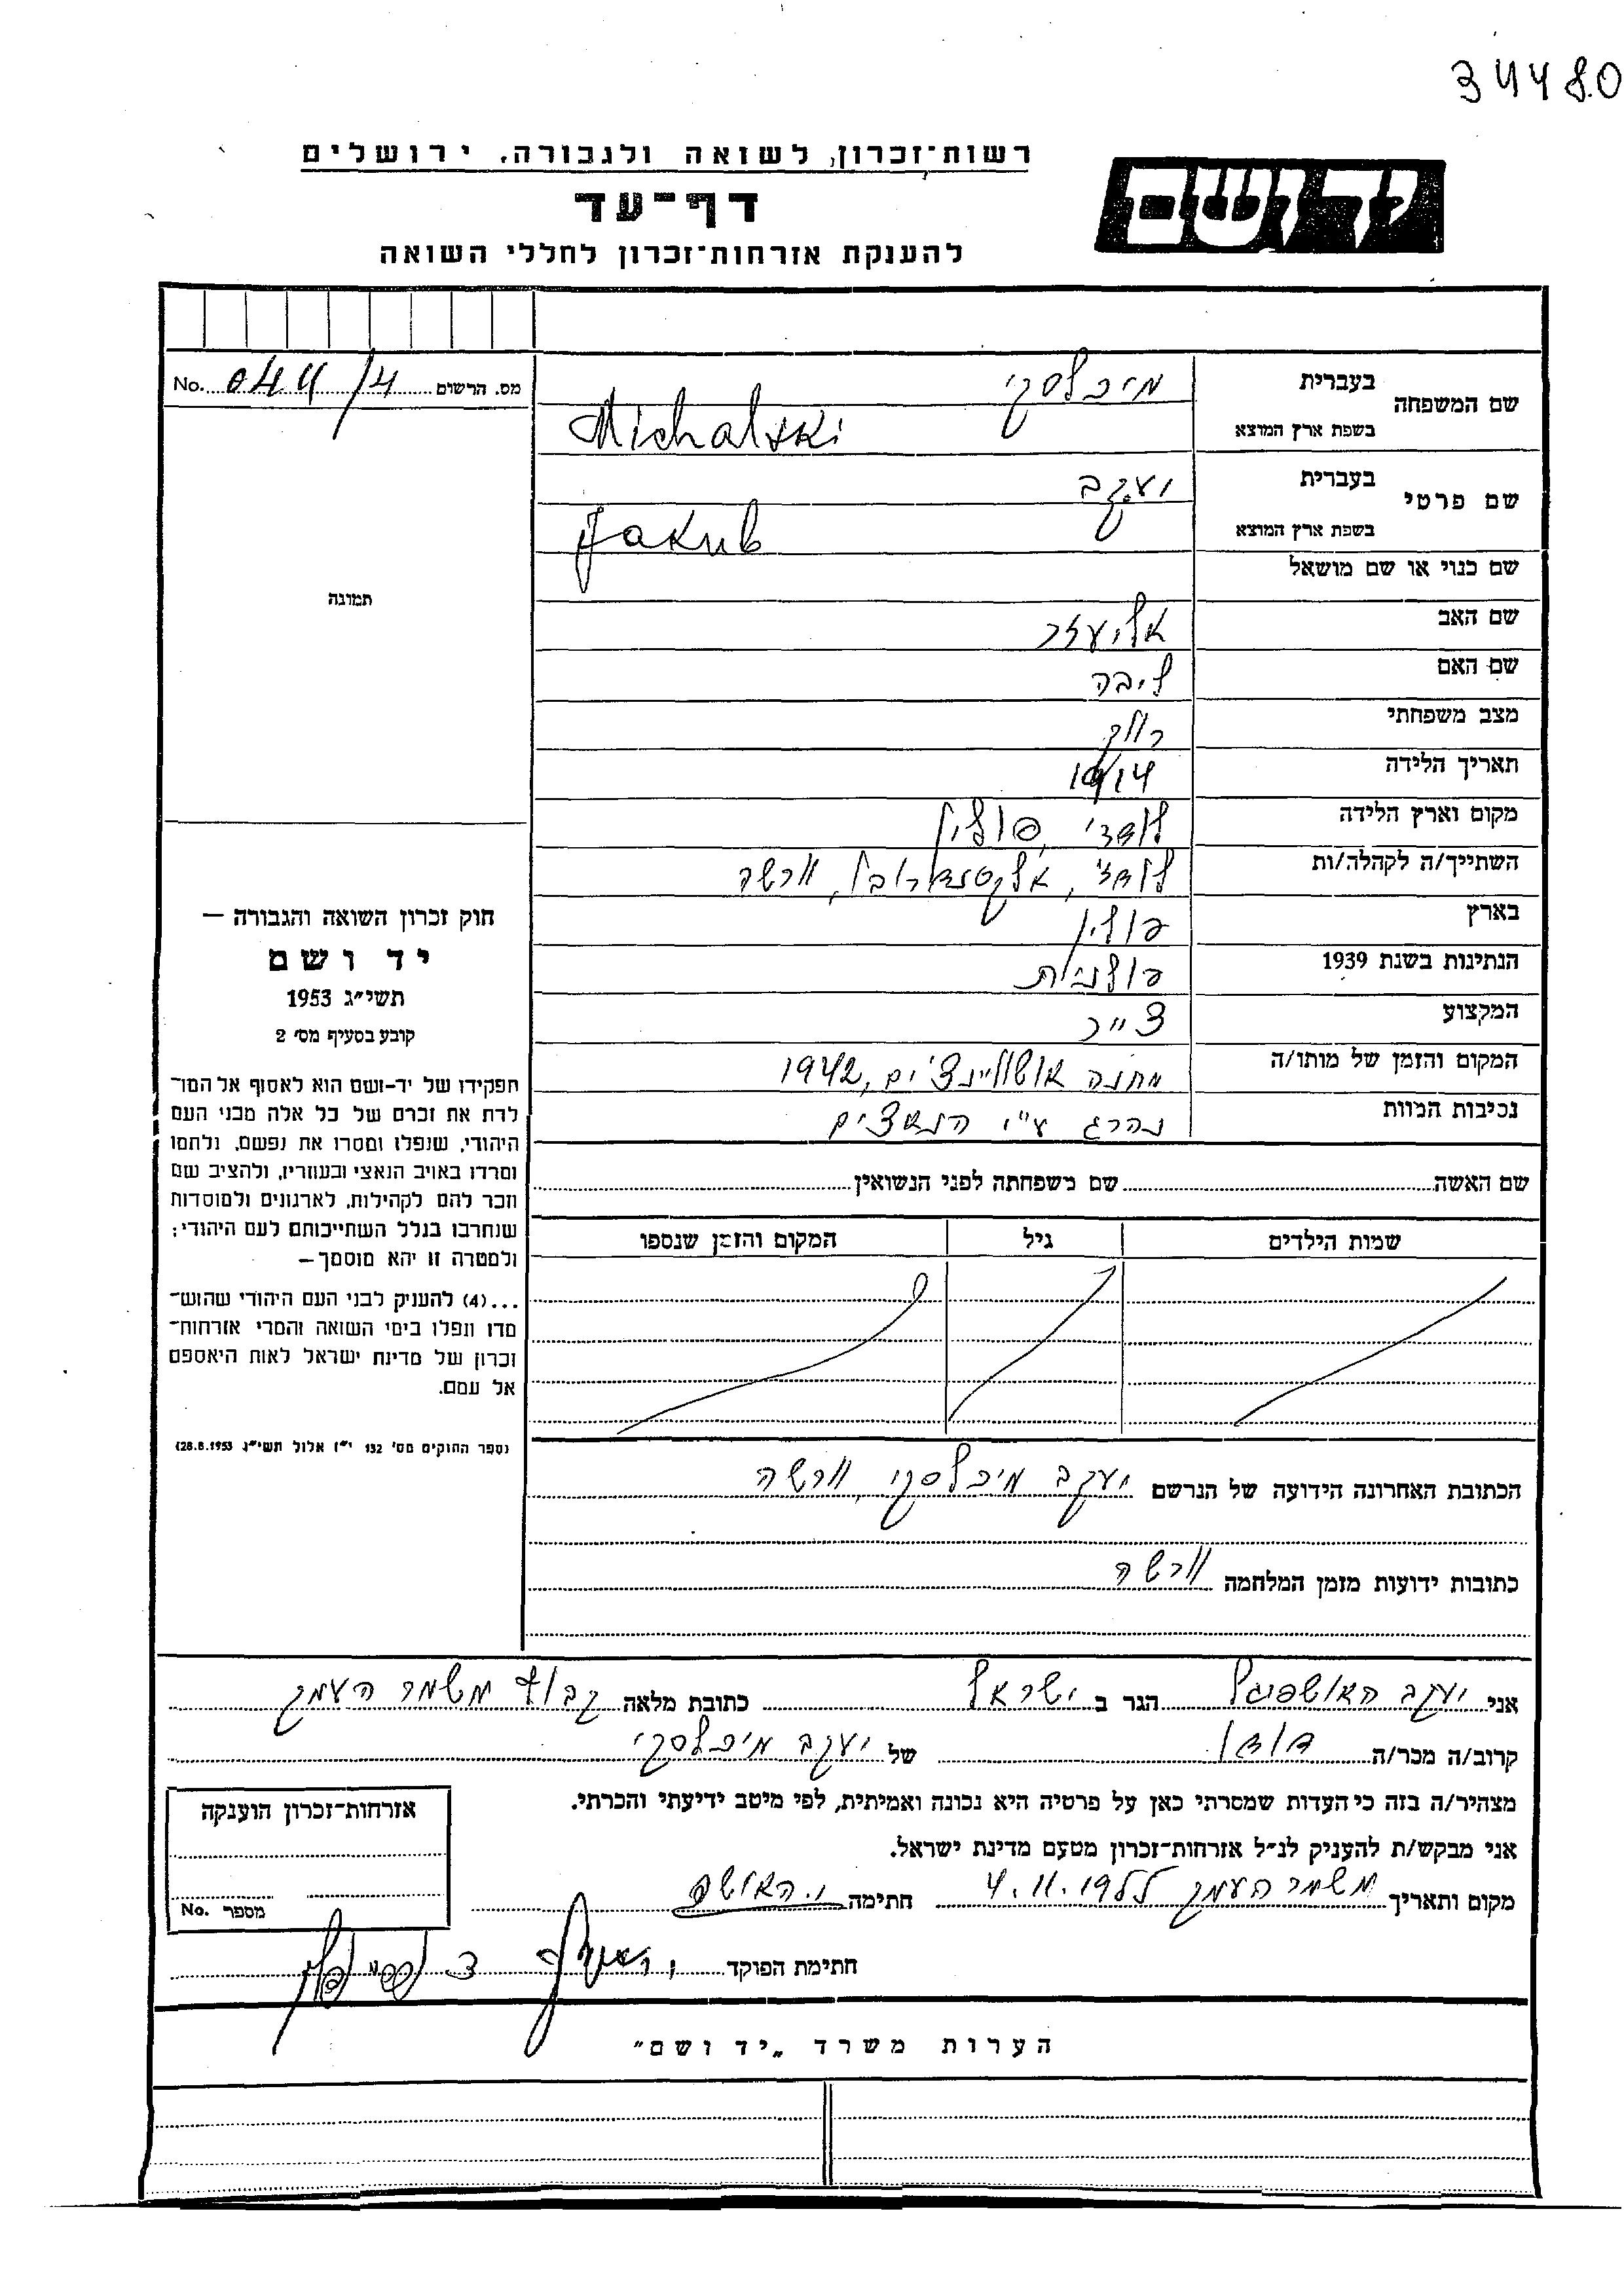 34480
רשות־זכרון, לשואה ולגבורה, ירושלים
יד ושם
דף־עד
להענקת אזרחות־זכרון לחללי השואה
שם המשפחה
בעברית מיכלסקי
בשפת ארץ המוצא Michalski
שם פרטי
בעברית יעקב
בשפת ארץ המוצא Jakub
שם כנוי או שם מושאל
שם האב אליעזר
שם האם ליבה
מצב משפחתי רווק
תאריך הלידה 1914
מקום וארץ הלידה לודז', פולין
השתייך/ה לקהלה/ות לודז', אלקסנדרוב, ורשה
בארץ פולין
הנתינות בשנת 1939 פולנית
המקצוע צייר
המקום והזמן של מותו/ה מחנה אושוויינצ'ים, 1942
נסיבות המוות נהרג ע"י הנאצים
שם האשה שם משפחתה לפני הנשואין
שמות הילדים גיל המקום והזמן שנספו
הכתובת האחרונה הידועה של הנרשם יעקב מיכלסקי, וורשה
כתובות ידועות מזמן המלחמה וורשה
מס. הרשום 044/4 No.
תמונה
חוק זכרון השואה והגבורה —
יד ושם
תשי״ג 1953
קובע בסעיף מס׳ 2
תפקידו של יד־ושם הוא לאסוף אל המו־
לדת את זכרם של כל אלה מבני העם
היהודי, שנפלו ומסרו את נפשם, נלחמו
ומרדו באויב הנאצי ובעוזריו, ולהציב שם
וזכר להם לקהילות, לארגונים ולמוסדות
שנחרבו בגלל השתייכותם לעם היהודי;
ולמטרה זו יהא מוסמך —
...(4) להעניק לבני העם היהודי שהוש־
מדו ונפלו בימי השואה והמרי אזרחות־
זכרון של מדינת ישראל לאות היאספם
אל עמם.
(ספר החוקים מס׳ 132 י״ז אלול תשי״ג 28.8.1953)
אני יעקב האושפיגל הגר ב ישראל כתובת מלאה קבוץ משמר העמק
קרוב/ה מכר/ה דודו של יעקב מיכלסקי
מצהיר/ה בזה כי העדות שמסרתי כאן על פרטיה היא נכונה ואמיתית, לפי מיטב ידיעתי והכרתי.
אני מבקש/ת להעניק לנ״ל אזרחות־זכרון מטעם מדינת ישראל.
מקום ותאריך משמר העמק 4.11.1955 חתימה י. האושפ
חתימת הפוקד
אזרחות־זכרון הוענקה
מספר No.
הערות משרד „יד ושם״